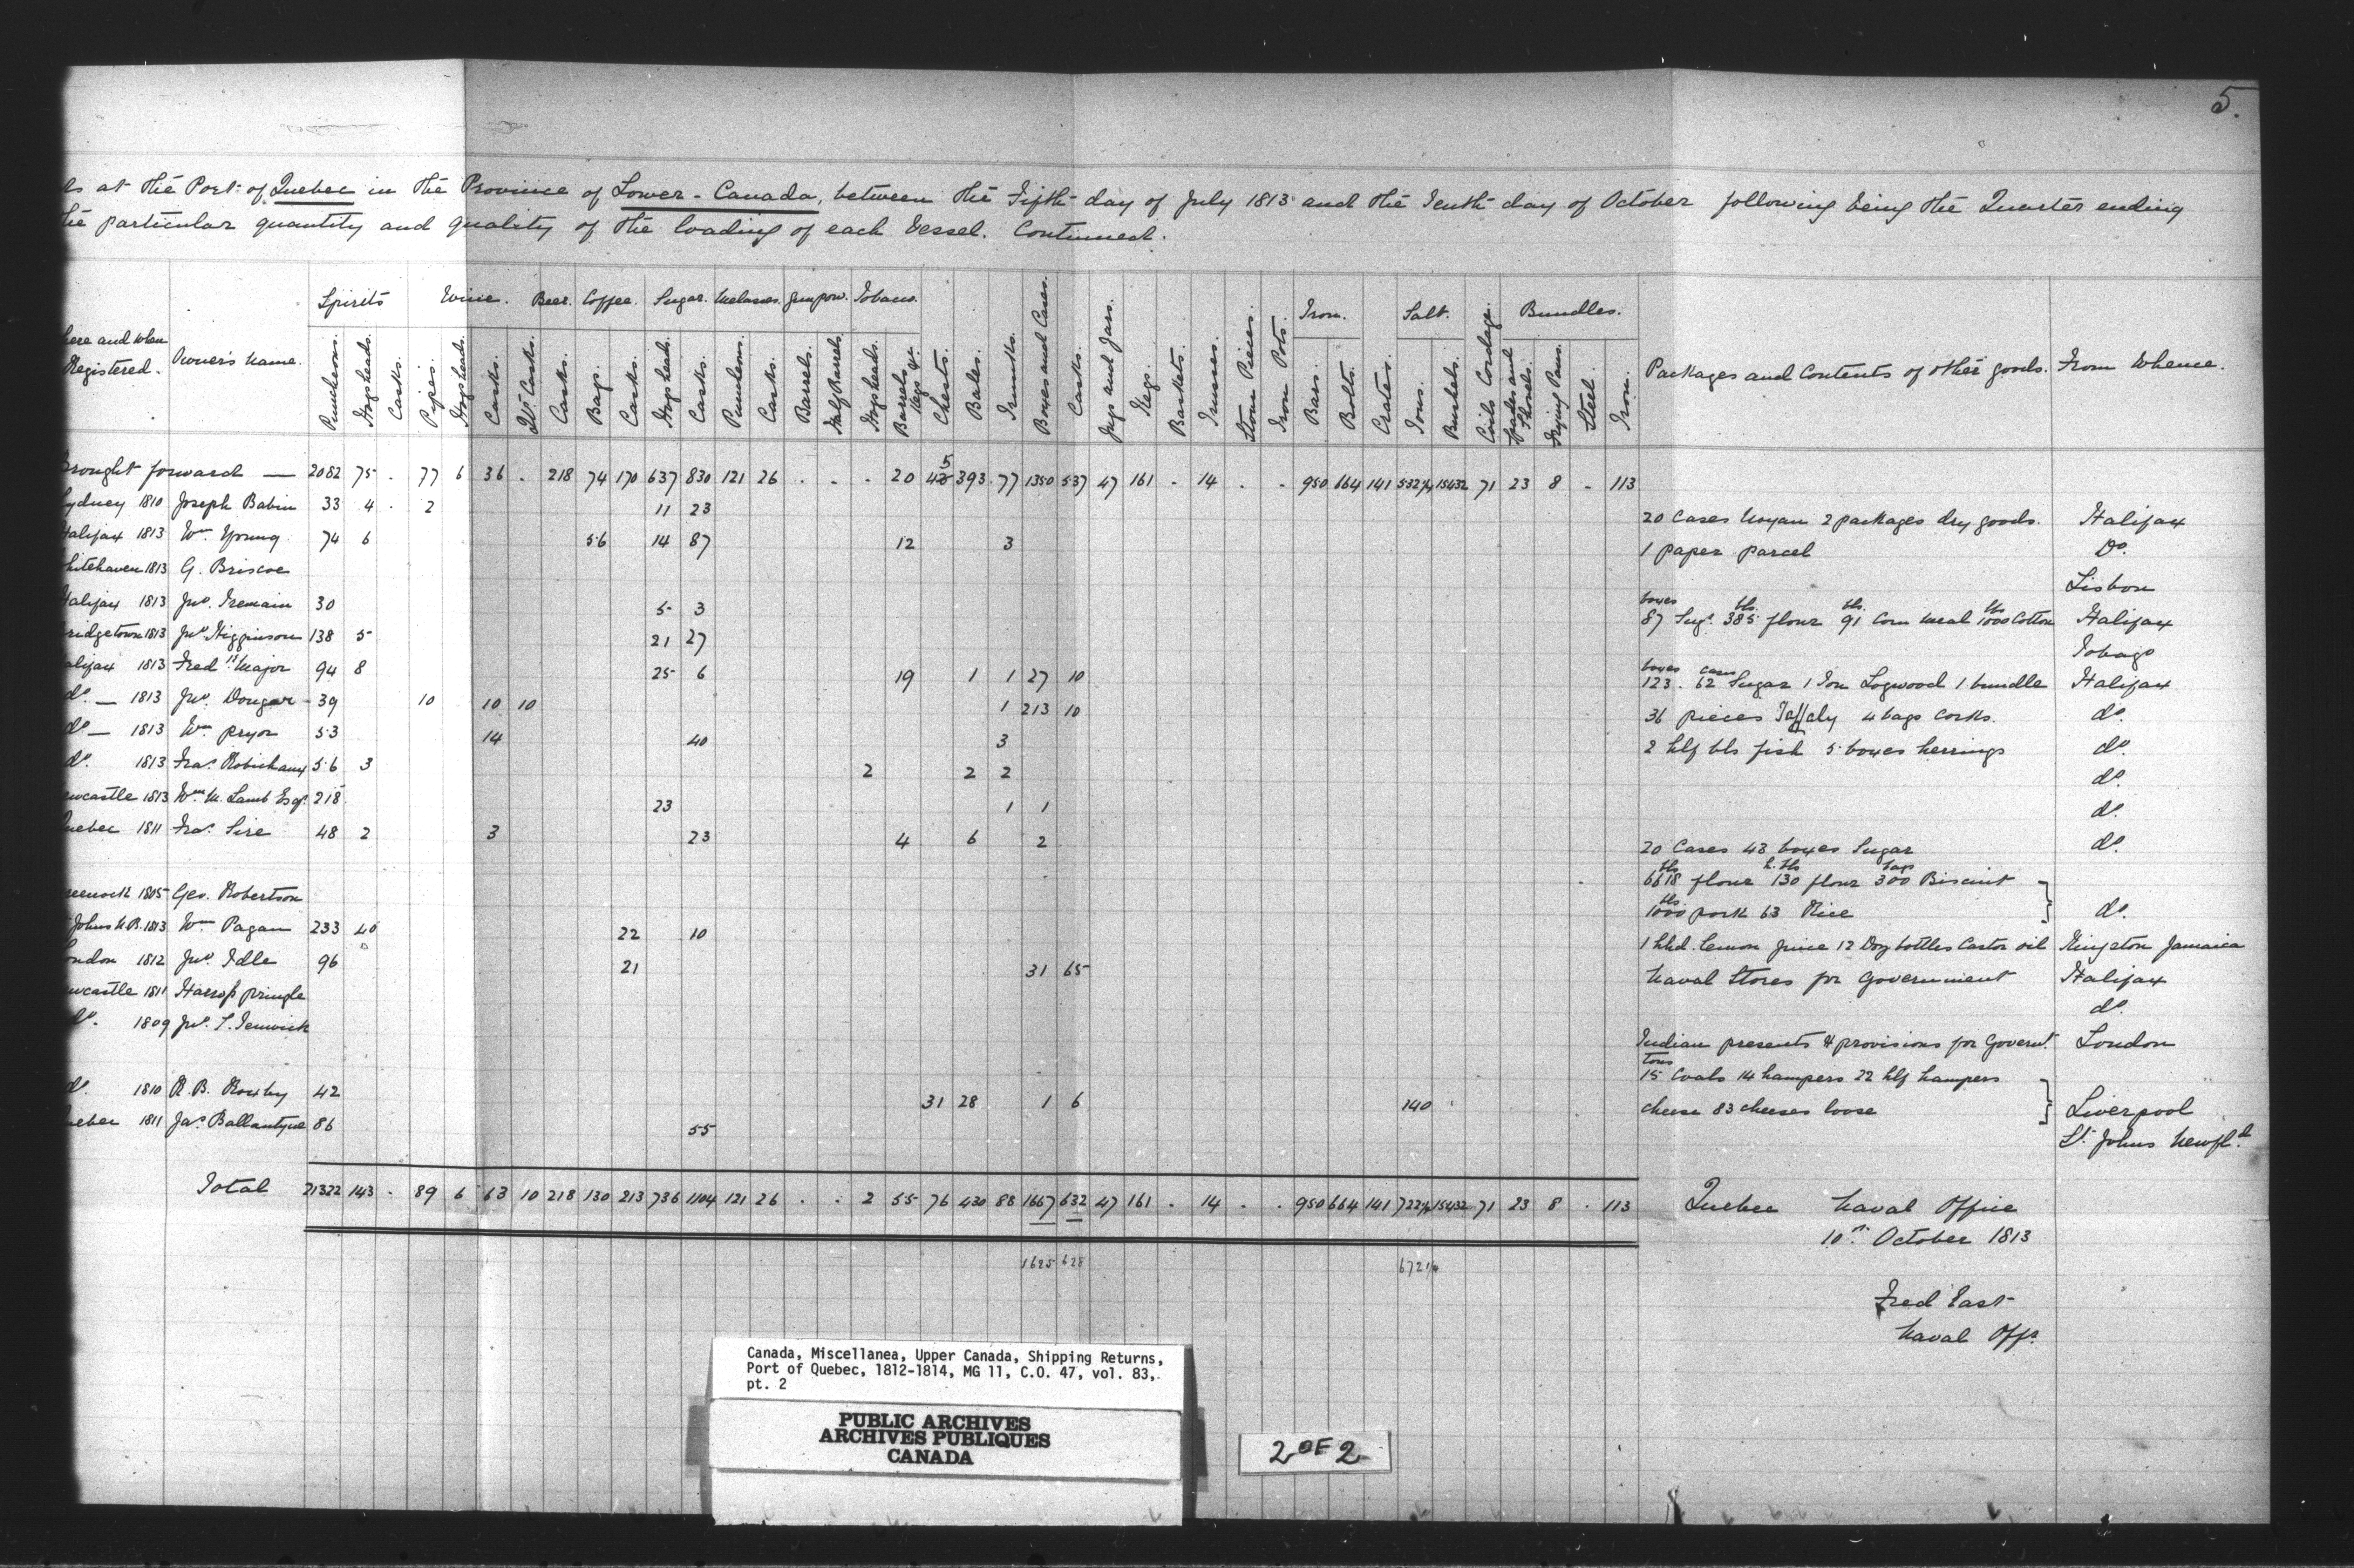 5.
ls at the Port of Quebec in the Province of Lower-Canada, between the Fifth day of July 1813 and the Tenth day of October following being the Quarter ending
the particular quantity and quality of the loading of each Vessel. Continued.
Spirits Wine. Beer. Coffee. Sugar. Melasses. Gunpow. Tobacco. Iron. Salt. Bundles.
here and when Registered. Owner's Name. Puncheons. Hogsheads. Casks. Pipes. Hogsheads. Casks. Qr. Casks. Casks. Bags. Casks. Hogsheads. Casks. Puncheons. Casks. Barrels. Half Barrels. Hogsheads. Barrels, Kegs &c. Chests. Bales. Trunks. Boxes and Cases. Casks. Jugs and Jars. Kegs. Baskets. Trusses. Stone Pieces. Iron Pots. Bars. Bolts. Crates. Tons. Bushels. Coils Cordage. Spades and Shovels. Frying Pans. Steel. Iron. Packages and Contents of other goods. From Whence.
Brought forward — 2082 75 . 77 6 36 . 218 74 170 637 830 121 26 . . . 20 45 393 77 1350 537 47 161 . 14 . . 950 664 141 532¼ 15432 71 23 8 . 113
Sydney 1810 Joseph Babin 33 4 . 2 11 23 20 Cases Noyau 2 packages dry goods. Halifax
Halifax 1813 Wm. Young 74 6 56 14 87 12 3 1 paper parcel Do.
hitehaven 1813 G. Briscoe Lisbon
Halifax 1813 Jno. Tremain 30 5 3 87 boxes Sugr. 385 bls. flour 91 bls. Corn meal 1000 lbs Cotton Halifax
ridgetown 1813 Jno. Higginson 138 5 21 27 Tobago
alifax 1813 Fredk. Major 94 8 25 6 19 1 1 27 10 123 boxes . 62 cases Sugar 1 Ton Logwood 1 bundle Halifax
do. — 1813 Jno. Dougar 39 10 10 10 1 213 10 36 pieces 4 bags corks. do.
do — 1813 Wm. pryor 53 14 40 3 2 hlf bls fish 5 boxes herrings do.
do. 1813 Fras. Robichaux 56 3 2 2 2 do.
ewcastle 1813 Wm. M. Lamb Esqr. 218 23 1 1 do.
uebec 1811 Fras. Sire 48 2 3 23 4 6 2 20 Cases 43 boxes Sugar do.
reenock 1805 Geo. Robertson 6618 bls flour 130 h. bls flour 300 bags Biscuit
1000 bls. pork 63 Rice do.
Johns N.B. 1813 Wm. Pagan 233 40 22 10 1 hhd. lemon juice 12 Doz bottles Castor oil Kingston Jamaica
ondon 1812 Jno. Idle 96 21 31 65 Naval Stores for Government Halifax
ewcastle 1811 pringle do.
do. 1809 Jno. Indian presents & provisions for Governt. London
15 tons Coals 14 hampers 22 hlf hampers
do. 1810 R. B. Roxby 42 31 28 1 6 140 cheese 83 cheeses loose Liverpool
uebec 1811 Jas. Ballantyne 86 55 St. Johns Newfld.
Total 21322 143 . 89 6 63 10 218 130 213 736 1104 121 26 . . 2 55 76 430 88 1667 632 47 161 . 14 . . 950 664 141 722¼ 15432 71 23 8 . 113
1625 628 672¼
Quebec Naval Office
10th. October 1813
Fred East
Naval Offr.
Canada, Miscellanea, Upper Canada, Shipping Returns,
Port of Quebec, 1812-1814, MG 11, C.O. 47, vol. 83,
pt. 2
PUBLIC ARCHIVES
ARCHIVES PUBLIQUES
CANADA
2 OF 2